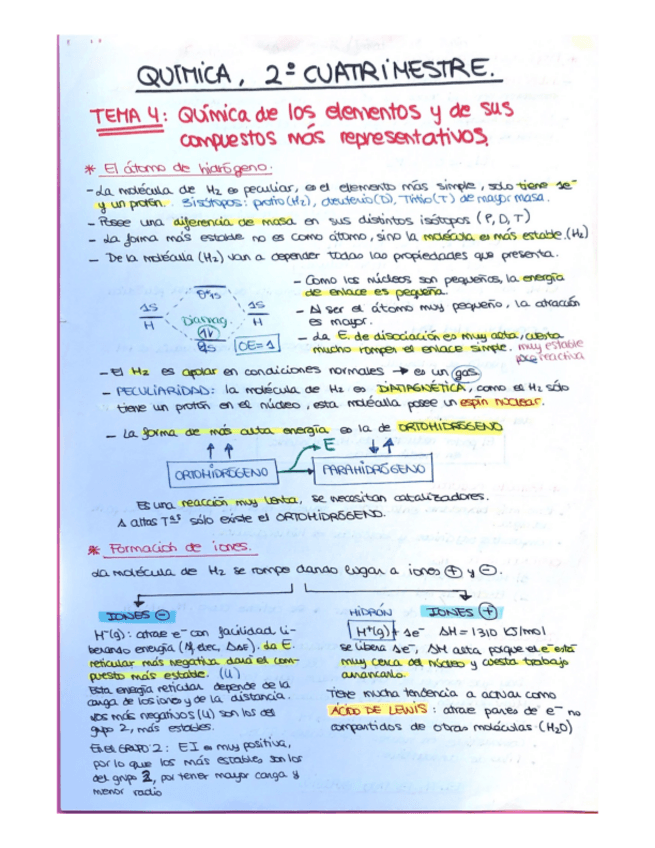 QUÍMICA, 2º CUATRIMESTRE.
TEMA 4: Química de los elementos y de sus
compuestos más representativos.
* El átomo de hidrógeno.
- La molécula de H2 es peculiar, es el elemento más simple, solo tiene 1e-
y un protón. 3 isótopos: protio (H2), deuterio (D), Tritio (T) de mayor masa.
- Posee una diferencia de masa en sus distintos isótopos (P, D, T)
- La forma más estable no es como átomo, sino la molécula es más estable. (H2)
- De la molécula (H2) van a depender todas las propiedades que presenta.
- Como los núcleos son pequeños, la energía
de enlace es pequeña.
- Al ser el átomo muy pequeño, la atracción
es mayor.
- La E. de disociación es muy alta, cuesta
mucho romper el enlace simple. muy estable
poco reactiva
1s
H
Diamag.
1s
H
OE=1
- El H2 es apolar en condiciones normales → es un gas
- PECULIARIDAD: la molécula de H2 es DIAMAGNÉTICA, como es H2 sólo
tiene un protón en el núcleo, esta molécula posee un espín nuclear.
- La forma de más alta energía es la de ORTOHIDRÓGENO
↑ ↑ E ↓ ↑
ORTOHIDRÓGENO → PARAHIDRÓGENO
Es una reacción muy lenta, se necesitan catalizadores.
A altas Tªs sólo existe el ORTOHIDRÓGENO.
* Formación de iones.
La molécula de H2 se rompe dando lugar a iones ⊕ y ⊖.
IONES ⊖
H-(g): atrae e- con facilidad li-
berando energía (A, elec, ΔAE). La E.
reticular más negativa dará el com-
puesto más estable. (U)
Esta energía reticular depende de la
carga de los iones y de la distancia.
Los más negativos (U) son los del
grupo 2, más estables.
En el GRUPO 2: EI es muy positiva,
por lo que los más estables son los
del grupo 2, por tener mayor carga y
menor radio
HIDRÓN IONES ⊕
H+(g) + 1e- ΔH = 1310 KJ/mol
se libera 1e-, ΔH alta porque el e- está
muy cerca del núcleo y cuesta trabajo
arrancarlo.
Tiene mucha tendencia a actuar como
ÁCIDO DE LEWIS: atrae pares de e- no
compartidos de otras moléculas (H2O)